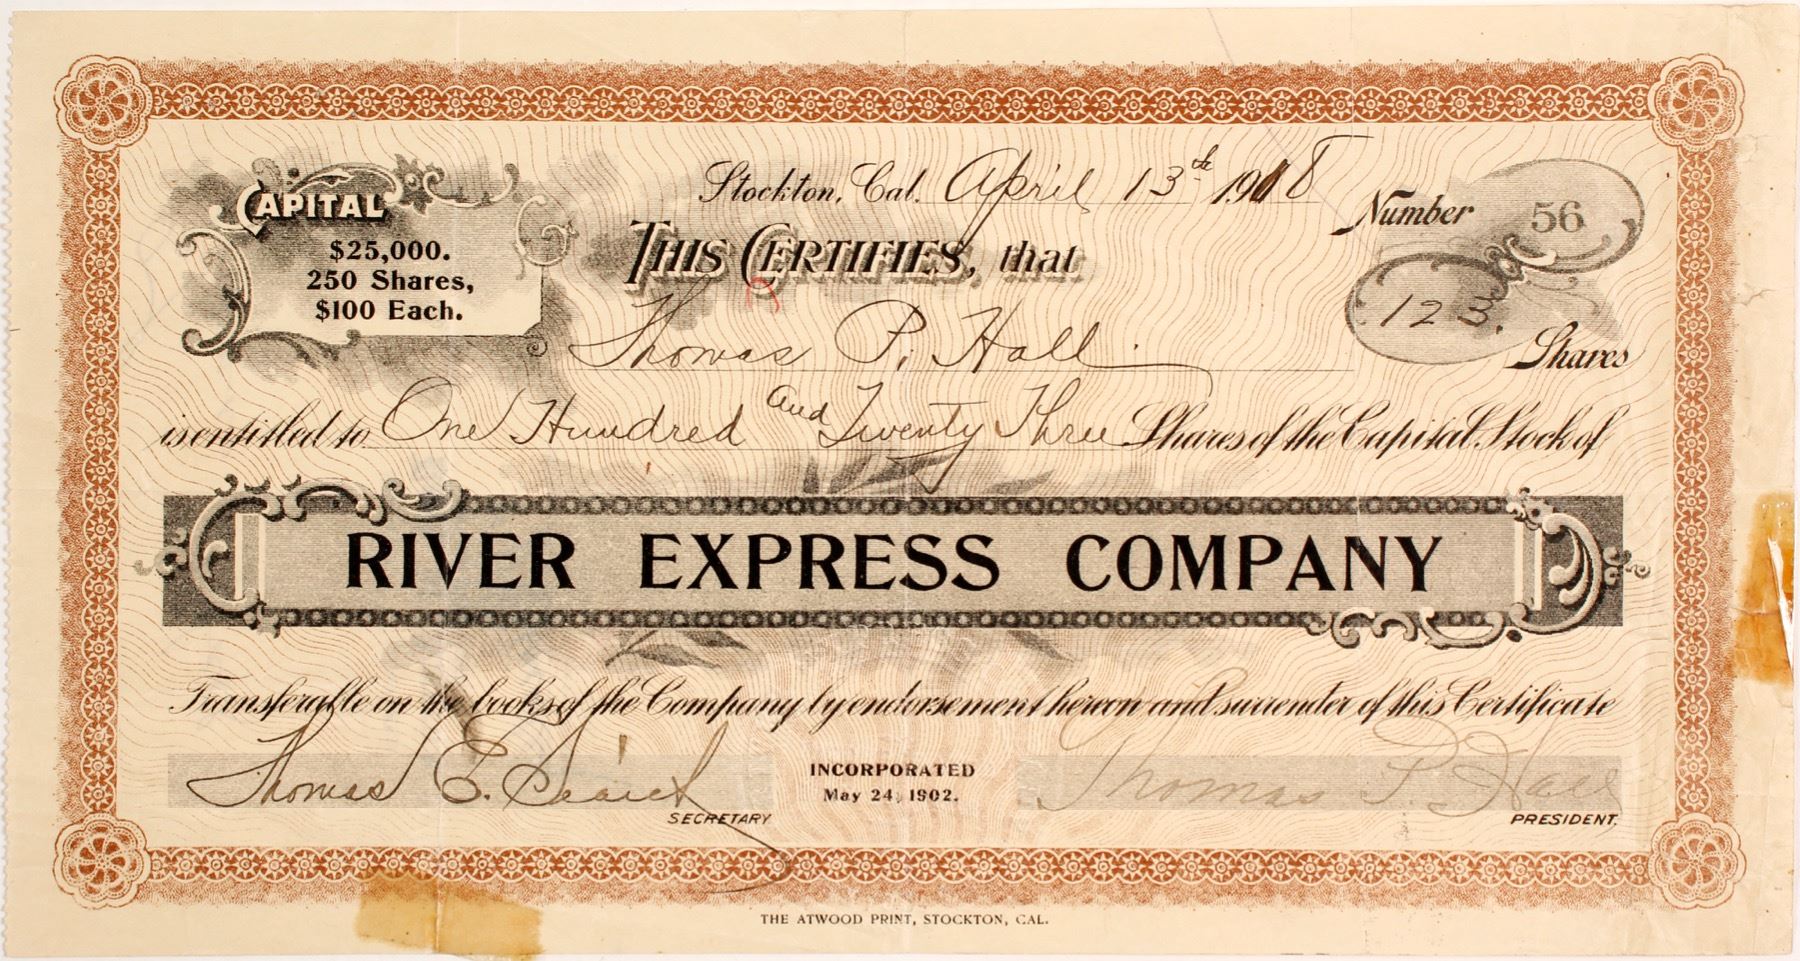 Stockton, Cal. April 13th 1918
Number 56
CAPITAL
$25,000.
250 Shares,
$100 Each.
THIS CERTIFIES, that
123 Shares
Thomas P. Hall
is entitled to One Hundred and Twenty Three Shares of the Capital Stock of
RIVER EXPRESS COMPANY
Transferable on the books of the Company by endorsement hereon and surrender of this Certificate
Thomas E.
SECRETARY
INCORPORATED
May 24, 1902.
Thomas P. Hall
PRESIDENT.
THE ATWOOD PRINT, STOCKTON, CAL.